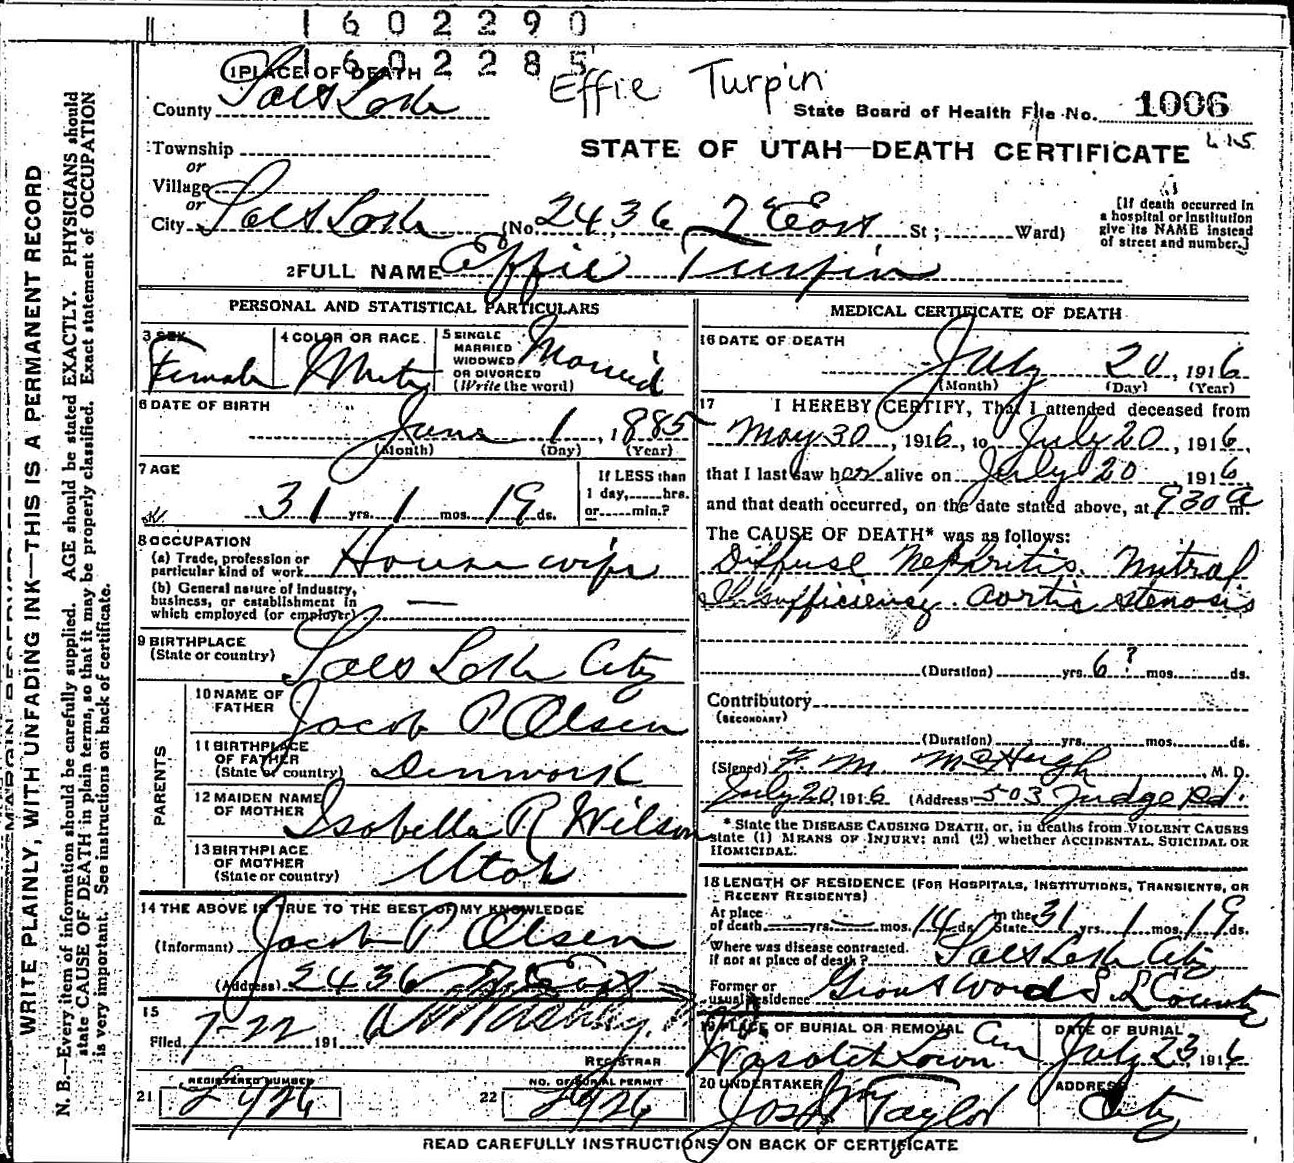 1602290
1602285
Effie Turpin
1 PLACE OF DEATH
County Salt Lake
State Board of Health File No. 1006
Township
STATE OF UTAH—DEATH CERTIFICATE
or
Village
or
City Salt Lake (No. 2436 7 East St; Ward)
[If death occurred in
a hospital or institution
give its NAME instead
of street and number.]
2 FULL NAME Effie Turpin
PERSONAL AND STATISTICAL PARTICULARS
3 SEX
Female
4 COLOR OR RACE
White
5 SINGLE
MARRIED
WIDOWED
OR DIVORCED
(Write the word)
Married
6 DATE OF BIRTH
June 1, 1885
(Month) (Day) (Year)
7 AGE
31 yrs. 1 mos. 19 ds.
If LESS than
1 day, hrs.
or min.?
8 OCCUPATION
(a) Trade, profession or
particular kind of work Housewife
(b) General nature of industry,
business, or establishment in
which employed (or employer) —
9 BIRTHPLACE
(State or country) Salt Lake City
PARENTS
10 NAME OF
FATHER Jacob P Olsen
11 BIRTHPLACE
OF FATHER
(State or country) Denmark
12 MAIDEN NAME
OF MOTHER Isabella R Wilson
13 BIRTHPLACE
OF MOTHER
(State or country) Utah
14 THE ABOVE IS TRUE TO THE BEST OF MY KNOWLEDGE
(Informant) Jacob P Olsen
(Address) 2436 7 East
15
Filed 7-22 1916
REGISTRAR
21 REGISTERED NUMBER
22 NO. OF BURIAL PERMIT
MEDICAL CERTIFICATE OF DEATH
16 DATE OF DEATH
July 20, 1916
(Month) (Day) (Year)
17 I HEREBY CERTIFY, That I attended deceased from
May 30, 1916, to July 20, 1916,
that I last saw her alive on July 20, 1916
and that death occurred, on the date stated above, at 930 a m.
The CAUSE OF DEATH* was as follows:
Diffuse Nephritis. Mitral
Insufficiency. Aortic stenosis
(Duration) yrs. 6? mos. ds.
Contributory
(SECONDARY)
(Duration) yrs. mos. ds.
(Signed) F. M. McHugh, M. D.
July 20, 1916 (Address) 503 Judge Bd.
* State the DISEASE CAUSING DEATH, or, in deaths from VIOLENT CAUSES
state (1) MEANS OF INJURY; and (2) whether ACCIDENTAL, SUICIDAL OR
HOMICIDAL.
18 LENGTH OF RESIDENCE (FOR HOSPITALS, INSTITUTIONS, TRANSIENTS, OR
RECENT RESIDENTS)
At place
of death — yrs. — mos. 14 ds. In the State 31 yrs. 1 mos. 19 ds.
Where was disease contracted,
if not at place of death? Salt Lake City
Former or
usual residence Grant Ward S. L County
19 PLACE OF BURIAL OR REMOVAL
Wasatch Lawn Cem
DATE OF BURIAL
July 23, 1916
20 UNDERTAKER
Jos Wm Taylor
ADDRESS
City
READ CAREFULLY INSTRUCTIONS ON BACK OF CERTIFICATE
WRITE PLAINLY, WITH UNFADING INK—THIS IS A PERMANENT RECORD
N. B.—Every item of information should be carefully supplied. AGE should be stated EXACTLY. PHYSICIANS should
state CAUSE OF DEATH in plain terms, so that it may be properly classified. Exact statement of OCCUPATION
is very important. See instructions on back of certificate.